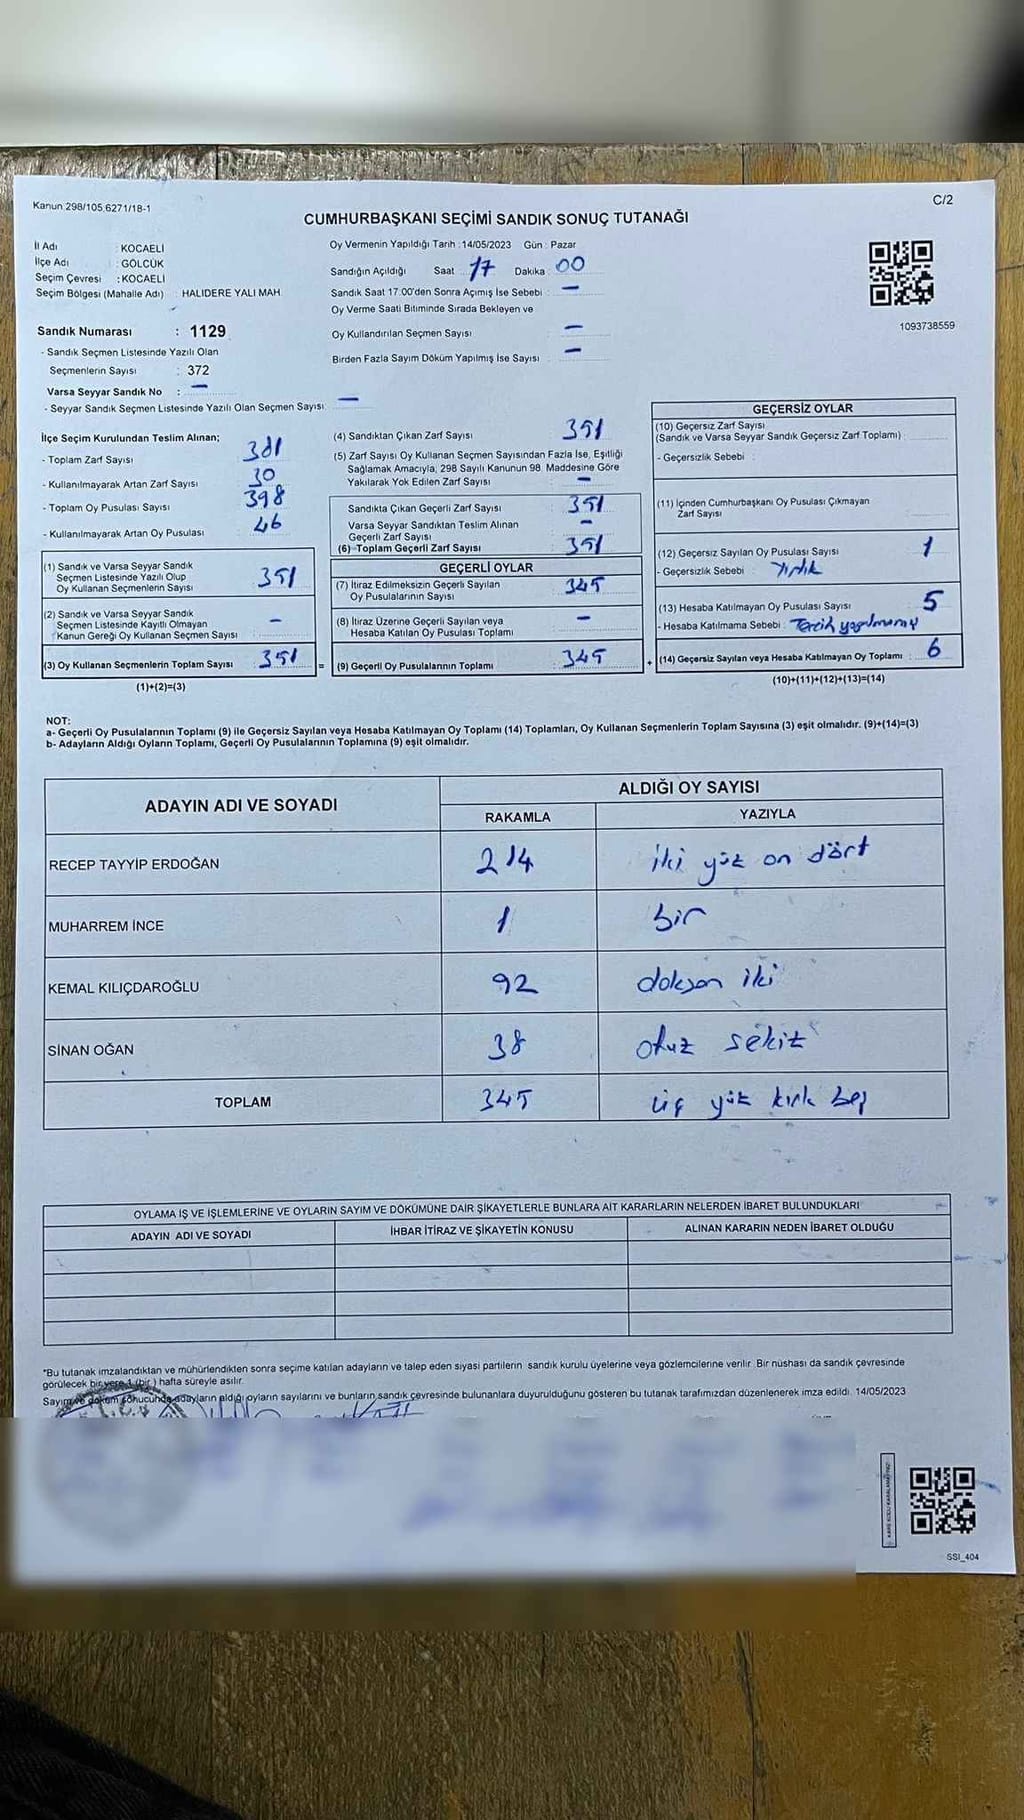 Kanun 298/105,6271/18-1
C/2
CUMHURBAŞKANI SEÇİMİ SANDIK SONUÇ TUTANAĞI
İl Adı : KOCAELİ
İlçe Adı : GÖLCÜK
Seçim Çevresi : KOCAELİ
Seçim Bölgesi (Mahalle Adı) : HALIDERE YALI MAH
Sandık Numarası : 1129
- Sandık Seçmen Listesinde Yazılı Olan
Seçmenlerin Sayısı : 372
Varsa Seyyar Sandık No : –
- Seyyar Sandık Seçmen Listesinde Yazılı Olan Seçmen Sayısı: –
Oy Vermenin Yapıldığı Tarih :14/05/2023 Gün : Pazar
Sandığın Açıldığı Saat 17 Dakika 00
Sandık Saat 17.00'den Sonra Açımış İse Sebebi : –
Oy Verme Saati Bitiminde Sırada Bekleyen ve
Oy Kullandırılan Seçmen Sayısı –
Birden Fazla Sayım Döküm Yapılmış İse Sayısı : –
1093738559
İlçe Seçim Kurulundan Teslim Alınan;
- Toplam Zarf Sayısı 381
- Kullanılmayarak Artan Zarf Sayısı 30
- Toplam Oy Pusulası Sayısı 398
- Kullanılmayarak Artan Oy Pusulası 46
(1) Sandık ve Varsa Seyyar Sandık
Seçmen Listesinde Yazılı Olup
Oy Kullanan Seçmenlerin Sayısı 351
(2) Sandık ve Varsa Seyyar Sandık
Seçmen Listesinde Kayıtlı Olmayan
Kanun Gereği Oy Kullanan Seçmen Sayısı : –
(3) Oy Kullanan Seçmenlerin Toplam Sayısı 351 =
(1)+(2)=(3)
(4) Sandıktan Çıkan Zarf Sayısı 351
(5) Zarf Sayısı Oy Kullanan Seçmen Sayısından Fazla İse, Eşitliği
Sağlamak Amacıyla, 298 Sayılı Kanunun 98. Maddesine Göre
Yakılarak Yok Edilen Zarf Sayısı –
Sandıkta Çıkan Geçerli Zarf Sayısı 351
Varsa Seyyar Sandıktan Teslim Alınan
Geçerli Zarf Sayısı –
(6) Toplam Geçerli Zarf Sayısı 351
GEÇERLİ OYLAR
(7) İtiraz Edilmeksizin Geçerli Sayılan
Oy Pusulalarının Sayısı 345
(8) İtiraz Üzerine Geçerli Sayılan veya
Hesaba Katılan Oy Pusulası Toplamı –
(9) Geçerli Oy Pusulalarının Toplamı 345 +
GEÇERSİZ OYLAR
(10) Geçersiz Zarf Sayısı
(Sandık ve Varsa Seyyar Sandık Geçersiz Zarf Toplamı) :
- Geçersizlik Sebebi :
(11) İçinden Cumhurbaşkanı Oy Pusulası Çıkmayan
Zarf Sayısı
(12) Geçersiz Sayılan Oy Pusulası Sayısı 1
- Geçersizlik Sebebi : Yırtık
(13) Hesaba Katılmayan Oy Pusulası Sayısı 5
- Hesaba Katılmama Sebebi : Tercih yapılmamış
(14) Geçersiz Sayılan veya Hesaba Katılmayan Oy Toplamı : 6
(10)+(11)+(12)+(13)=(14)
NOT:
a- Geçerli Oy Pusulalarının Toplamı (9) ile Geçersiz Sayılan veya Hesaba Katılmayan Oy Toplamı (14) Toplamları, Oy Kullanan Seçmenlerin Toplam Sayısına (3) eşit olmalıdır. (9)+(14)=(3)
b- Adayların Aldığı Oyların Toplamı, Geçerli Oy Pusulalarının Toplamına (9) eşit olmalıdır.
ADAYIN ADI VE SOYADI
ALDIĞI OY SAYISI
RAKAMLA YAZIYLA
RECEP TAYYİP ERDOĞAN 214 iki yüz on dört
MUHARREM İNCE 1 bir
KEMAL KILIÇDAROĞLU 92 doksan iki
SİNAN OĞAN 38 otuz sekiz
TOPLAM 345 üç yüz kırk beş
OYLAMA İŞ VE İŞLEMLERİNE VE OYLARIN SAYIM VE DÖKÜMÜNE DAİR ŞİKAYETLERLE BUNLARA AİT KARARLARIN NELERDEN İBARET BULUNDUKLARI
ADAYIN ADI VE SOYADI İHBAR İTİRAZ VE ŞİKAYETİN KONUSU ALINAN KARARIN NEDEN İBARET OLDUĞU
*Bu tutanak imzalandıktan ve mühürlendikten sonra seçime katılan adayların ve talep eden siyasi partilerin sandık kurulu üyelerine veya gözlemcilerine verilir. Bir nüshası da sandık çevresinde
görülecek bir yere 1 (bir) hafta süreyle asılır.
Sayım ve döküm sonucunda adayların aldığı oyların sayılarını ve bunların sandık çevresinde bulunanlara duyurulduğunu gösteren bu tutanak tarafımızdan düzenlenerek imza edildi. 14/05/2023
SSI_404